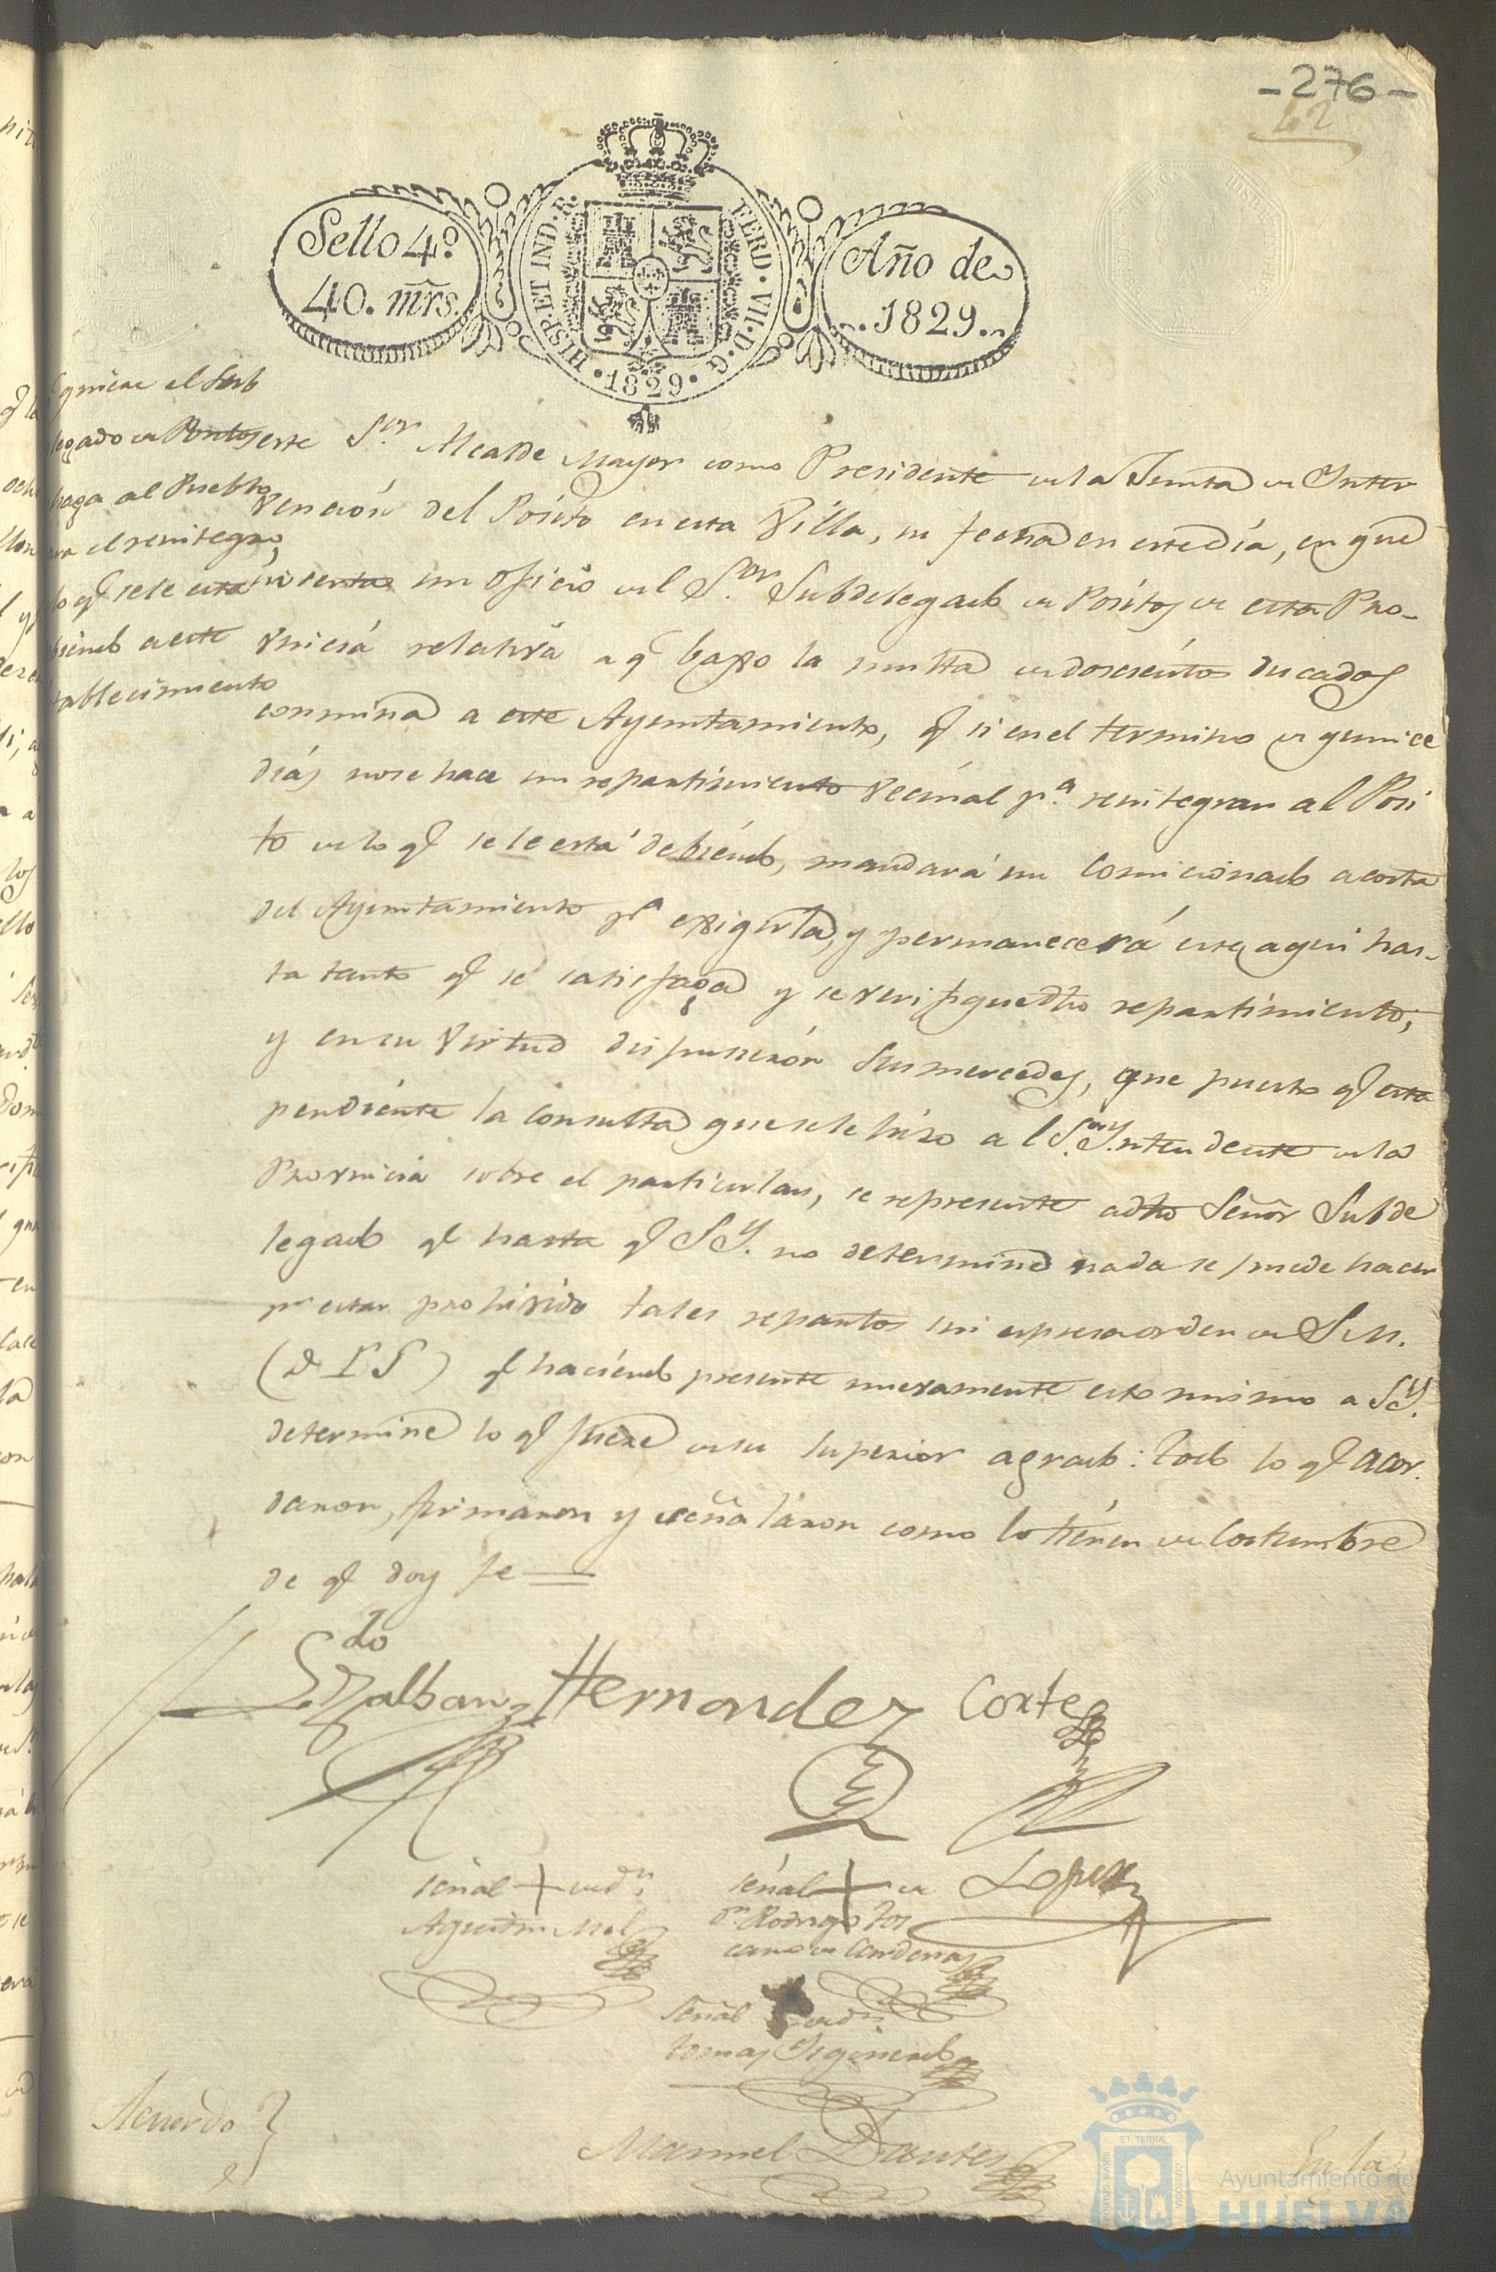 -276-
62
Sello 4º
40. mrs.
HISP. ET IND. R.
FERD. VII. D. G.
1829
Año de
1829.
quiere el Sub
legado de Positos
haga al Pueblo
para el reintegro
lo q.e se le está
debiendo a este
tablecimiento
este S.or Alcalde mayor como Presidente de la Junta de Inter
vención del Pósito en esta Villa, su fecha en este día, en que
inserta un oficio del S.or Subdelegado de Pósitos de esta Pro-
vincia relativa a q.e baxo la multa de doscientos ducados
conmina a este Ayuntamiento, q.e si en el termino de quince
días no se hace un repartimiento vecinal p.a reintegrar al Posi
to de lo q.e se le está debiendo, mandará un Comicionado a costa
del Ayuntamiento p.a exigirla, y permanecerá este aqui has-
ta tanto q.e se satisfaga y se verifique dho repartimiento;
y en su virtud dispusieron Sus mercedes, que puesto q.e esta
pendiente la Consulta que se le hizo al S.or Yntendente de la
Provincia sobre el particular, se represente a dho Señor Subde
legado q.e hasta q.e S.Y. no determine nada se puede hacer
p.r estar prohivido tales repartos sin espresa orden de S.M.
(D L G) q.e haciendo presente nuevamente esto mismo a S.Y.
determine lo q.e fuere de su superior agrado: Todo lo q.e acor.
daron, firmaron y señalaron como lo tienen de Costumbre
de q.e doy fe
L.do Zalban
Hernandez
Corte
señal + de d.n
Agustin
señal + de
d.n Rodrigo Tos
cano de Cardenas
Lopez
Señal de d.n
tomas
Manuel Dantes
Acuerdo
En la
ET TERRAE
CUSTODIA
Ayuntamiento de
HUELVA